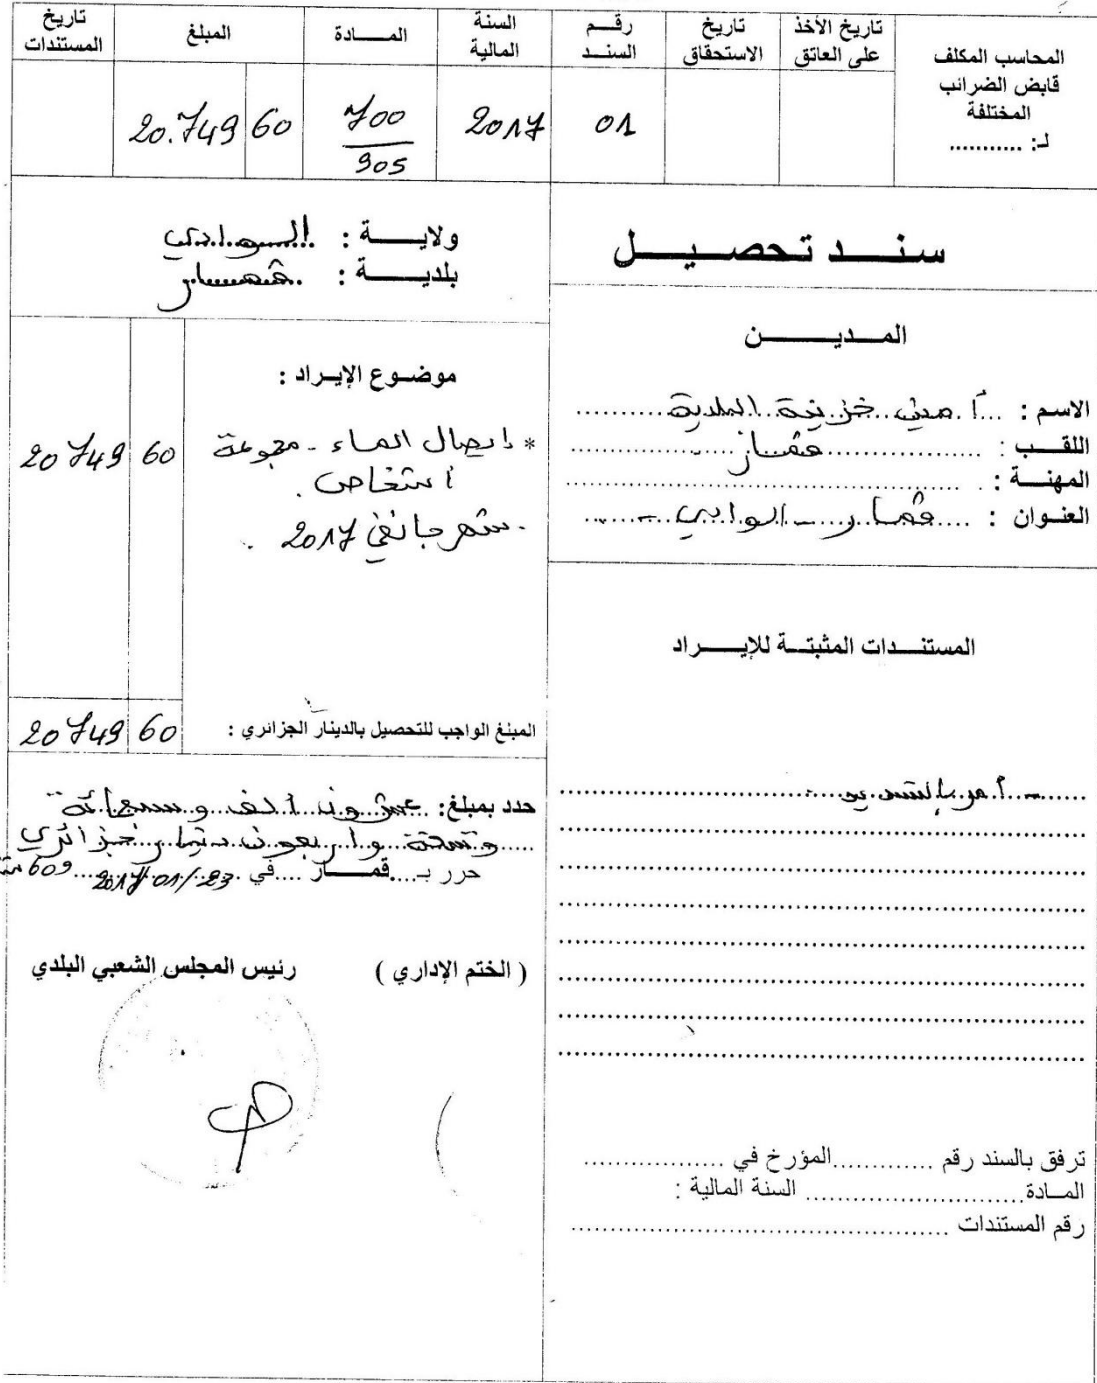 المحاسب المكلف
قابض الضرائب
المختلفة
لـ: ...........
تاريخ الأخذ على العاتق
تاريخ الاستحقاق
رقم السند
01
السنة المالية
2017
المادة
700
905
المبلغ
20.749 60
تاريخ المستندات
سند تحصيل
المدين
الاسم : أمين خزينة البلدية
اللقب : قمار
المهنة :
العنوان : قمار - الوادي -
المستندات المثبتة للإيراد
- أمر بالتسديد
ترفق بالسند رقم ............. المؤرخ في ..................
المادة ............................ السنة المالية :
رقم المستندات ................................................
ولاية : الوادي
بلدية : قمار
موضوع الإيراد :
* ايصال الماء - مجموعة
أشخاص .
- شهر جانفي 2017 .
20749 60
المبلغ الواجب للتحصيل بالدينار الجزائري :
20749 60
حدد بمبلغ: عشرون ألف وسبعمائة
وتسعة وأربعون دينار جزائري
و 60
حرر بـ قمار في 2017/01/23
( الختم الإداري )
رئيس المجلس الشعبي البلدي